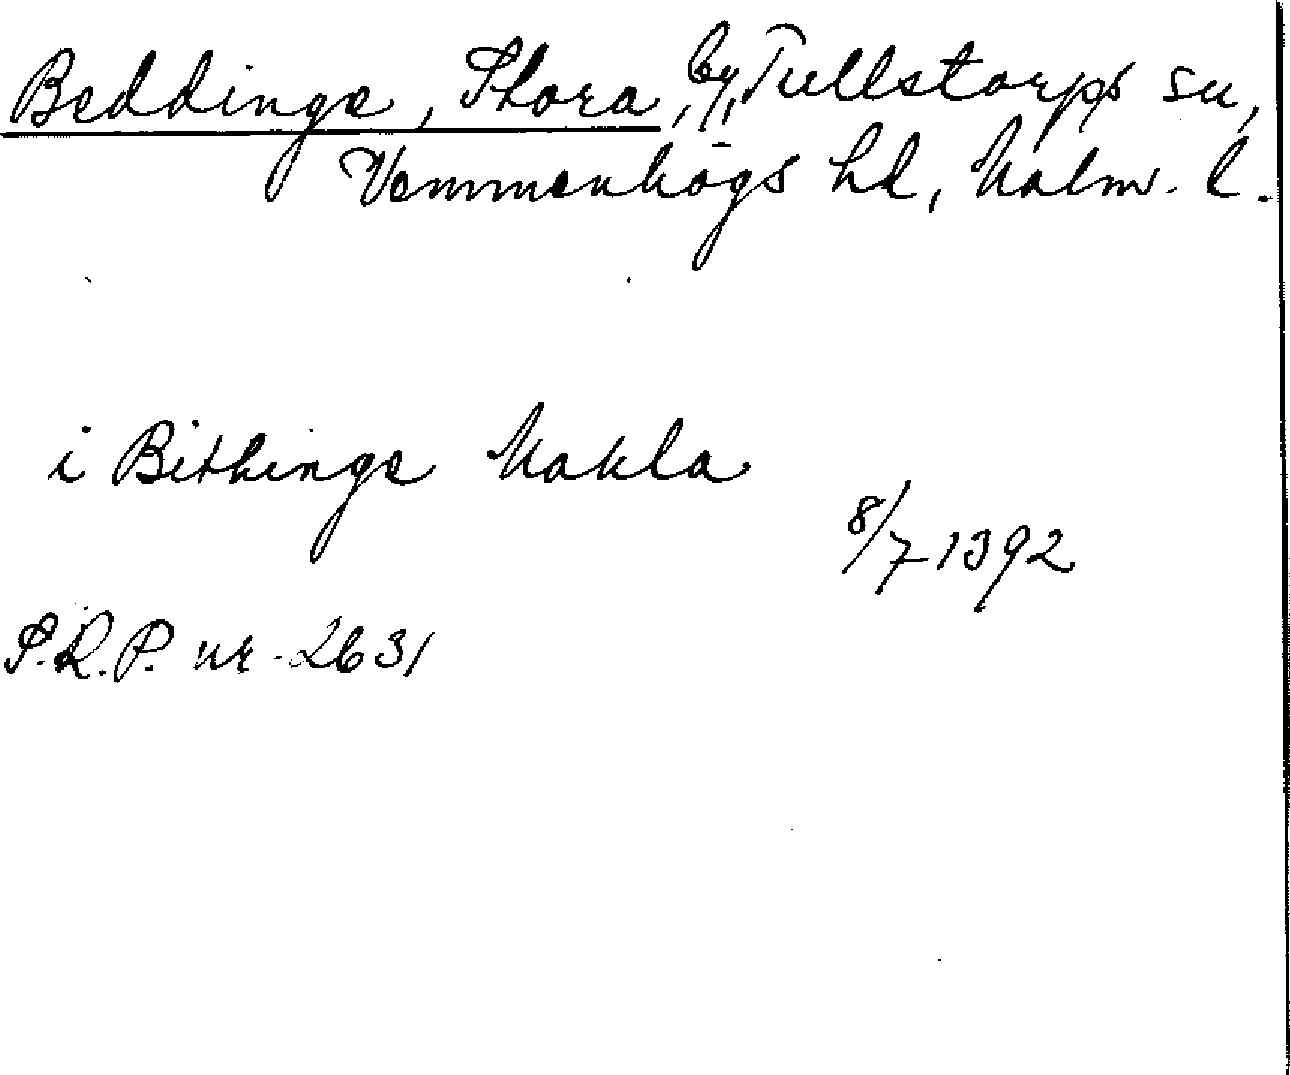 Beddinge, Stora, by, Tullstorps sn,
Vemmenhögs hd, Malm. l.
i Bithinge Makla
8/7 1392
S.R.P. nr. 2631